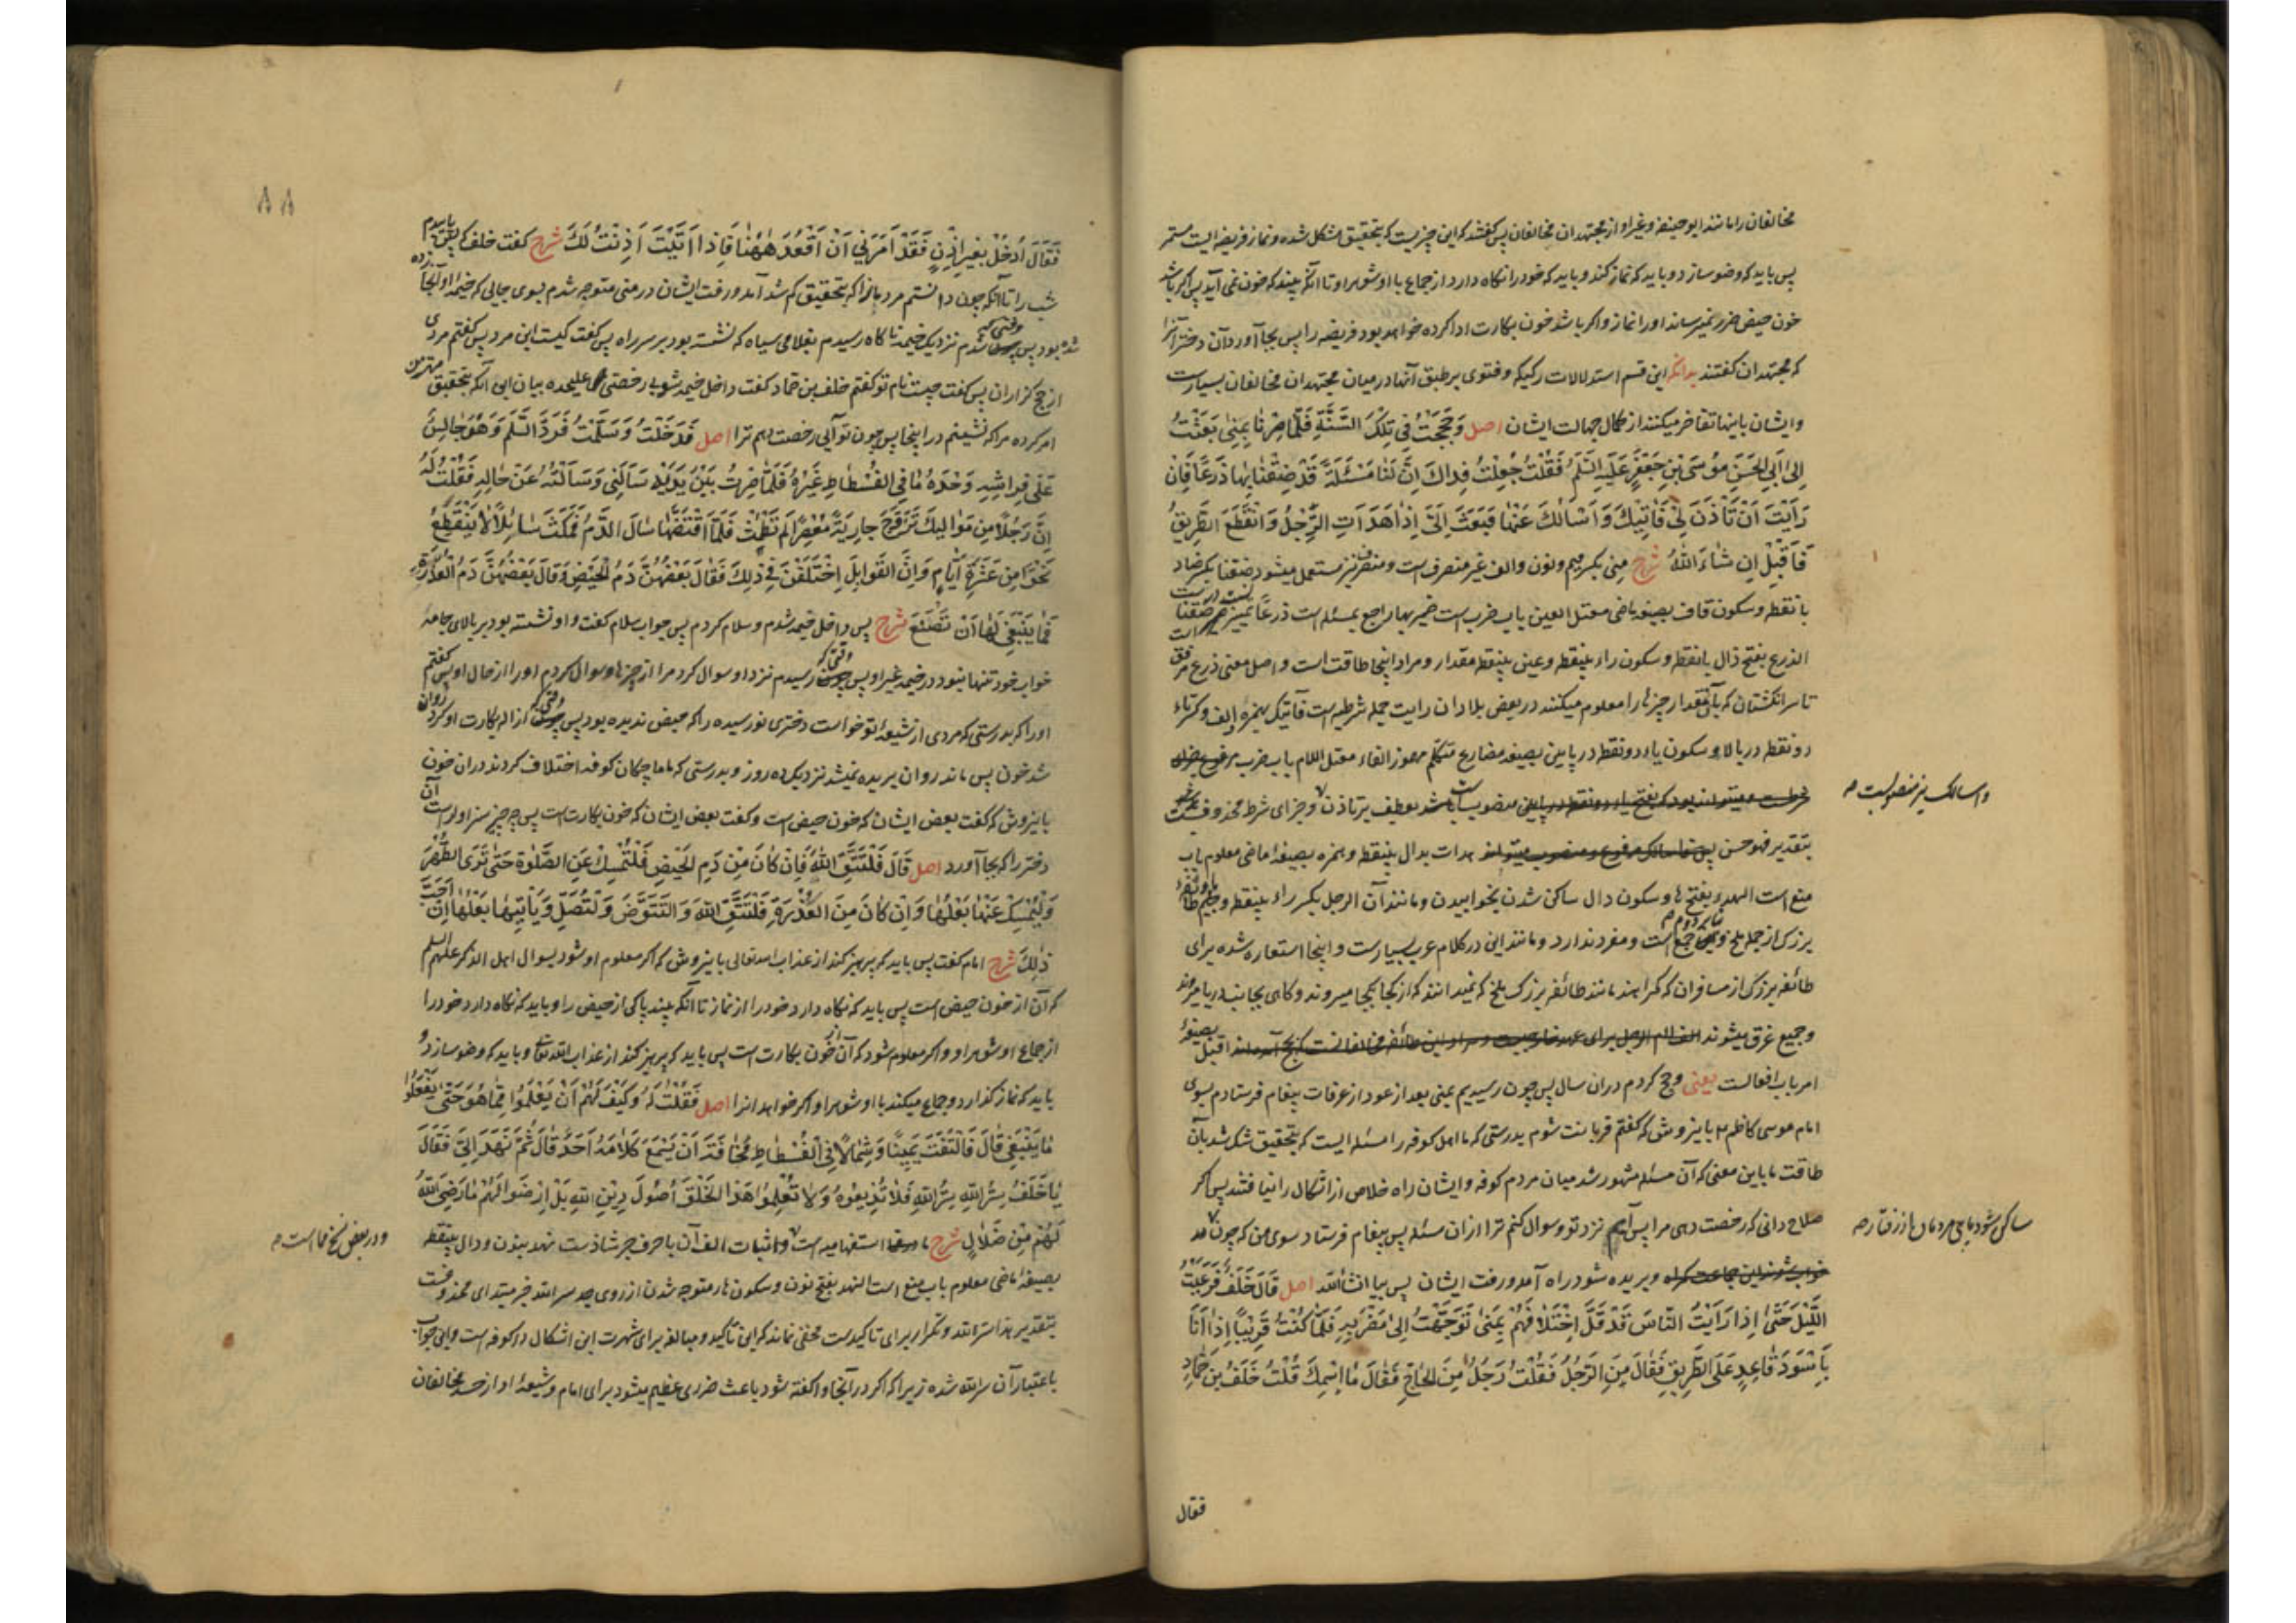 مخالفان را مانند ابو حنیفه و غیر او از مجتهدان مخالفان پس گفتند که این چیزیست که بتحقیق مشکل شده و نماز فریضه ایست مستمر
پس باید که وضو سازد و باید که نماز کند و باید که خود را نگاه دارد از جماع با او شوهر او تا آنکه بیند که خون نمی آید پس اگر باشد
خون حیض ضرر نمیرساند او را نماز و اگر باشد خون بکارت ادا کرده خواهد بود فریضه را پس بجا آورد آن دختر آنرا
که مجتهدان گفتند بدانکه این قسم استدلالات رکیکه و فتوی بر طبق آنها در میان مجتهدان مخالفان بسیارست
و ایشان باینها تفاخر میکنند از کمال جهالت ایشان اصل وَحَجَجْتُ فِی تِلْکَ السَّنَةِ فَلَمَّا صِرْنَا بِمِنًی بَعَثْتُ
اِلی اَبِی الحَسَنِ مُوسَی بْنِ جَعْفَرٍ عَلَیْهِ السَّلَمُ فَقُلْتُ جُعِلْتُ فِداکَ اِنَّ لَنَا مَسْئَلَةً قَدْ ضِقْنَا بِهَا ذَرْعًا فَاِنْ
رَاَیْتَ اَنْ تَأْذَنَ لِی فَآتِیَکَ وَاَسْاَلَکَ عَنْهَا فَبَعَثَ اِلَیَّ اِذَا هَدَاَتِ الرِّجْلُ وَانْقَطَعَ الطَّرِیقُ
فَاَقْبِلْ اِن شَاءَ اللهُ شرح منی بکسر میم و نون و الف غیر منصرف است و منصرف نیز مستعمل میشود ضقنا بکسر ضاد
با نقطه و سکون قاف بصیغه ماضی معتل العین باب ضرب است ضمیر بها راجع بمسئله است ذرعاً تمیز نسبت در ضقنا است
الذرع بفتح ذال با نقطه و سکون راء بینقطه و عین بینقطه مقدار و مراد اینجا طاقت است و اصل معنی ذرع مرفق
تا سر انگشتان که بآن مقدار چیزها را معلوم میکنند در بعض بلاد ان رایت جمله شرطیه است فآتیک بهمزه و الف و کسر تاء
دو نقطه در بالا و سکون یاء دو نقطه در پایین بصیغه مضارع متکلم مهموز الفاء معتل اللام باب ضرب
منصوبست بعطف بر تاذن و جزای شرط محذوفست
و اسالک نیز منصوبست صح
بتقدیر فهو حسن هدات بدال بینقطه و همزه بصیغه ماضی معلوم باب
منع است الهدء بفتح ها و سکون دال ساکن شدن بخوابیدن و مانند آن الرجل بکسر راء بینقطه و جیم طائفه
بزرک از جمله ملخ و جمع است و مفرد ندارد و مانند این در کلام عرب بسیارست و اینجا استعاره شده برای
طائفه بزرک از مسافران که گمراهند مانند طائفه بزرک ملخ که نمیدانند که از کجا بکجا میروند و کاهی بجانب دریا میروند
و جمیع غرق میشوند اقبل بصیغهٔ
امر باب افعالست یعنی و حج کردم در آن سال پس چون رسیدیم بمنی بعد از عود از عرفات پیغام فرستادم بسوی
امام موسی کاظم باینروش که گفتم قربانت شوم بدرستی که ما اهل کوفه را مسئله ایست که بتحقیق تنک شد بآن
طاقت ما باین معنی که آن مسئله مشهور شد میان مردم کوفه و ایشان راه خلاص از اشکال را نیافتند پس اگر
صلاح دانی که رخصت دهی مرا پس آیم نزد تو و سوال کنم ترا از ان مسئله پس پیغام فرستاد سوی من که چون
ساکن شود پای مردمان از رفتار صح
و بریده شود راه آمد و رفت ایشان پس بیا انشاءالله اصل قَالَ خَلَفٌ فَرَعَیْتُ
اللَّیْلَ حَتّی اِذَا رَاَیْتُ النَّاسَ قَدْ قَلَّ اخْتِلَافُهُمْ بِمِنًی تَوَجَّهْتُ اِلی مَضْرَبِهِ فَلَمَّا کُنْتُ قَرِیبًا اِذَا اَنَا
بِاَسْوَدَ قَاعِدٍ عَلَی الطَّرِیقِ فَقَالَ مَنِ الرَّجُلُ فَقُلْتُ رَجُلٌ مِنَ الحَاجِّ فَقَالَ مَا اسْمُکَ قُلْتُ خَلَفُ بْنُ حَمَّادٍ
فقال
٨٨
فَقَالَ اُدْخُلْ بِغَیْرِ اِذْنٍ فَقَدْ اَمَرَنِی اَنْ اَقْعُدَ هٰهُنَا فَاِذَا اَتَیْتَ اَذِنْتُ لَکَ شرح گفت خلف که پس
شب را تا آنکه چون دانستم مردمان را که بتحقیق کم شد آمد و رفت ایشان در منی متوجه شدم بسوی جایی که خیمهٔ او آنجا
زده شده بود پس وقتی که شدم نزدیک خیمه ناکاه رسیدم بغلامی سیاه که نشسته بود بر سر راه پس گفت کیست این مرد پس گفتم مردی
از حج گزاران پس گفت چیست نام تو گفتم خلف بن حماد گفت داخل خیمه شو بی رخصتی علیحده بیان این آنکه بتحقیق
امر کرده مرا که نشینم در اینجا پس چون تو آیی رخصت دهم ترا اصل فَدَخَلْتُ وَسَلَّمْتُ فَرَدَّ السَّلَمَ وَهُوَ جَالِسٌ
عَلَی فِرَاشِهِ وَحْدَهُ مَا فِی الفُسْطَاطِ غَیْرُهُ فَلَمَّا صِرْتُ بَیْنَ یَدَیْهِ سَاَلَنِی وَسَاَلْتُهُ عَنْ حَالِهِ فَقُلْتُ لَهُ
اِنَّ رَجُلًا مِن مَوَالِیکَ تَزَوَّجَ جَارِیَةً مُعْصِرًا لَمْ تَطْمِثْ فَلَمَّا اقْتَضَّهَا سَالَ الدَّمُ فَمَکَثَ سَائِلًا لَا یَنْقَطِعُ
نَحْوًا مِن عَشَرَةِ اَیَّامٍ وَاِنَّ القَوَابِلَ اخْتَلَفْنَ فِی ذٰلِکَ فَقَالَ بَعْضُهُنَّ دَمُ الحَیْضِ وَقَالَ بَعْضُهُنَّ دَمُ العُذْرَةِ
فَمَا یَنْبَغِی لَهَا اَنْ تَصْنَعَ شرح پس داخل خیمه شدم و سلام کردم پس جواب سلام گفت و او نشسته بود بر بالای جامهٔ
خواب خود تنها نبود در خیمه غیر او پس وقتی که رسیدم نزد او سوال کرد مرا از چیزها و سوال کردم او را از حال او پس گفتم
او را که بدرستی که مردی از شیعهٔ تو خواست دختری نورسیده را که حیض ندیده بود پس وقتی که ازاله بکارت او کرد روان
شد خون پس ماند روان بریده نمیشد نزدیک ده روز و بدرستی که ماماچگان کوفه اختلاف کردند در ان خون
باینروش که گفت بعض ایشان که خون حیض است و گفت بعض ایشان که خون بکارت است پس چه چیز سزاوار است آن
دختر را که بجا آورد اصل قَالَ فَلْتَتَّقِ اللهَ فَاِنْ کَانَ مِنْ دَمِ الحَیْضِ فَلْتُمْسِکْ عَنِ الصَّلٰوةِ حَتّی تَرَی الطُّهْرَ
وَلْیُمْسِکْ عَنْهَا بَعْلُهَا وَاِنْ کَانَ مِنَ العُذْرَةِ فَلْتَتَّقِ اللهَ وَلْتَتَوَضَّ وَلْتُصَلِّ وَیَأْتِیهَا بَعْلُهَا اِنْ اَحَبَّ
ذٰلِکَ شرح امام گفت پس باید که پرهیز کند از عذاب الله تعالی باینروش که اگر معلوم او شود بسوال اهل الذکر علیهم السلم
که آن از خون حیض است پس باید که نگاه دارد خود را از نماز تا آنکه بیند پاکی از حیض را و باید که نگاه دارد خود را
از جماع او شوهر او و اگر معلوم شود که آن از خون بکارت است پس باید که پرهیز کند از عذاب الله تعالی و باید که وضو سازد و
باید که نماز گذارد و جماع میکند با او شوهر او اگر خواهد آنرا اصل فَقُلْتُ لَهُ وَکَیْفَ لَهُمْ اَنْ یَعْلَمُوا مِمَّا هُوَ حَتّی یَفْعَلُوا
مَا یَنْبَغِی قَالَ فَالْتَفَتَ یَمِینًا وَشِمَالًا فِی الفُسْطَاطِ مَخَافَةَ اَنْ یَسْمَعَ کَلَامَهُ اَحَدٌ قَالَ ثُمَّ نَهَدَ اِلَیَّ فَقَالَ
یَا خَلَفُ سِرُّ اللهِ سِرُّ اللهِ فَلَا تُذِیعُوهُ وَلَا تُعَلِّمُوا هٰذَا الخَلْقَ اُصُولَ دِینِ اللهِ بَلْ اِرْضَوْا لَهُمْ مَا رَضِیَ اللهُ
لَهُمْ مِنْ ضَلَالٍ شرح ما استفهامیه است و اثبات الف آن با حرف جر شاذست نهد بنون و دال بینقطه
و در بعض نسخ مما است صح
بصیغهٔ ماضی معلوم باب منع است النهد بفتح نون و سکون ها متوجه شدن از روی جد سر الله خبر مبتدای محذوفست
بتقدیر هذا سر الله و تکرار برای تاکیدست مخفی نماند که این تاکید و مبالغه برای شهرت این اشکال در کوفه است و این جواب
باعتبار آن سر الله شده زیرا که اگر در آنجا وا گفته شود باعث ضرری عظیم میشود برای امام و شیعهٔ او از حسد مخالفان